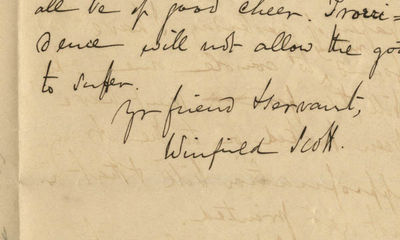 all be of good cheer. Provi=
dence will not allow the go
to suffer.
Yr friend & servant,
Winfield Scott.